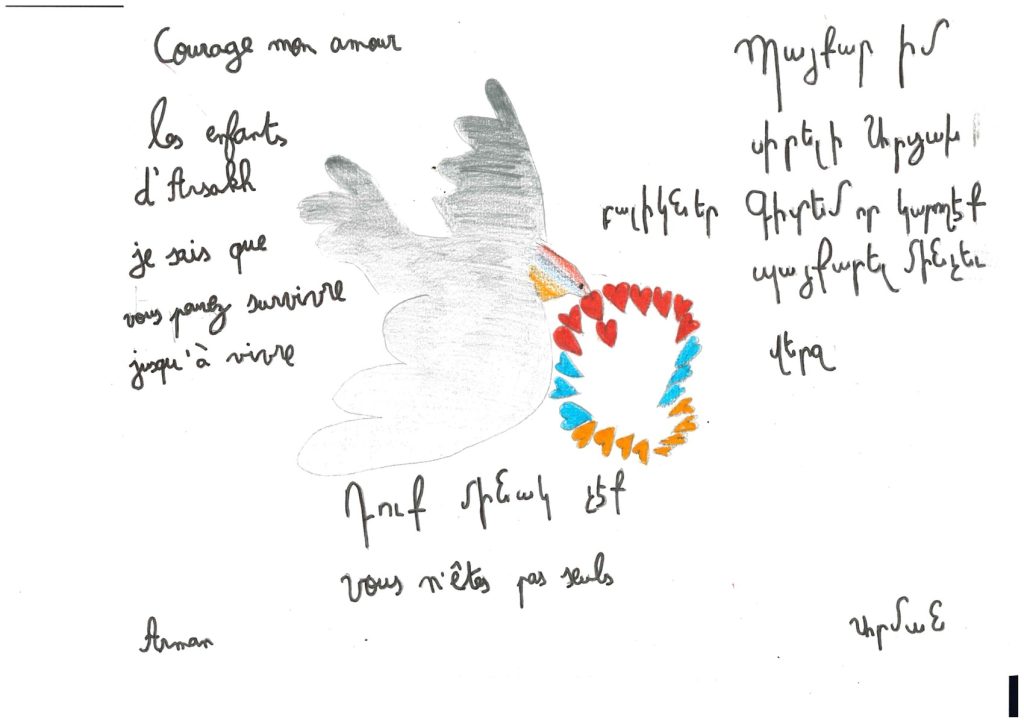 Courage mon amour
les enfants
d'Arsakh
je sais que
vous pouvez survivre
jusqu'à vivre
Պայքար իմ
սիրելի Արցախ
բալիկներ Գիտեմ որ կարող էք
պայքարել մինչեւ
վերջ
Դուք մինակ չէք
vous n'êtes pas seuls
Arman
Արման